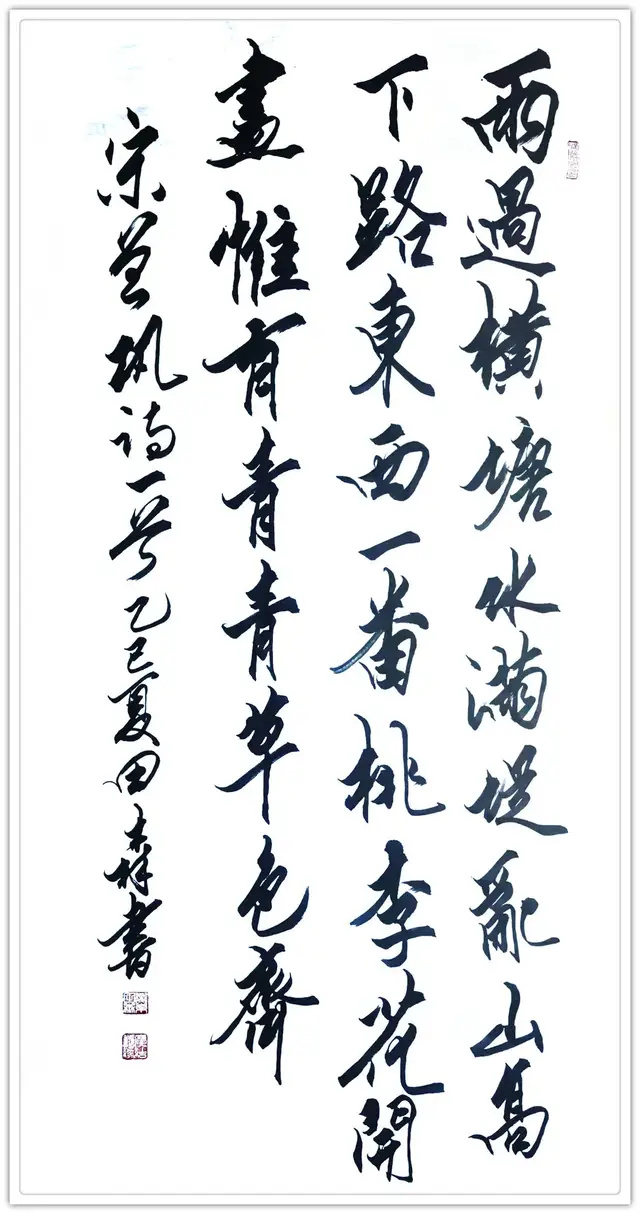 雨過橫塘水滿堤亂山高
下路東西一番桃李花開
盡惟有青青草色齊
宋曾巩詩一首乙巳夏田士祥書